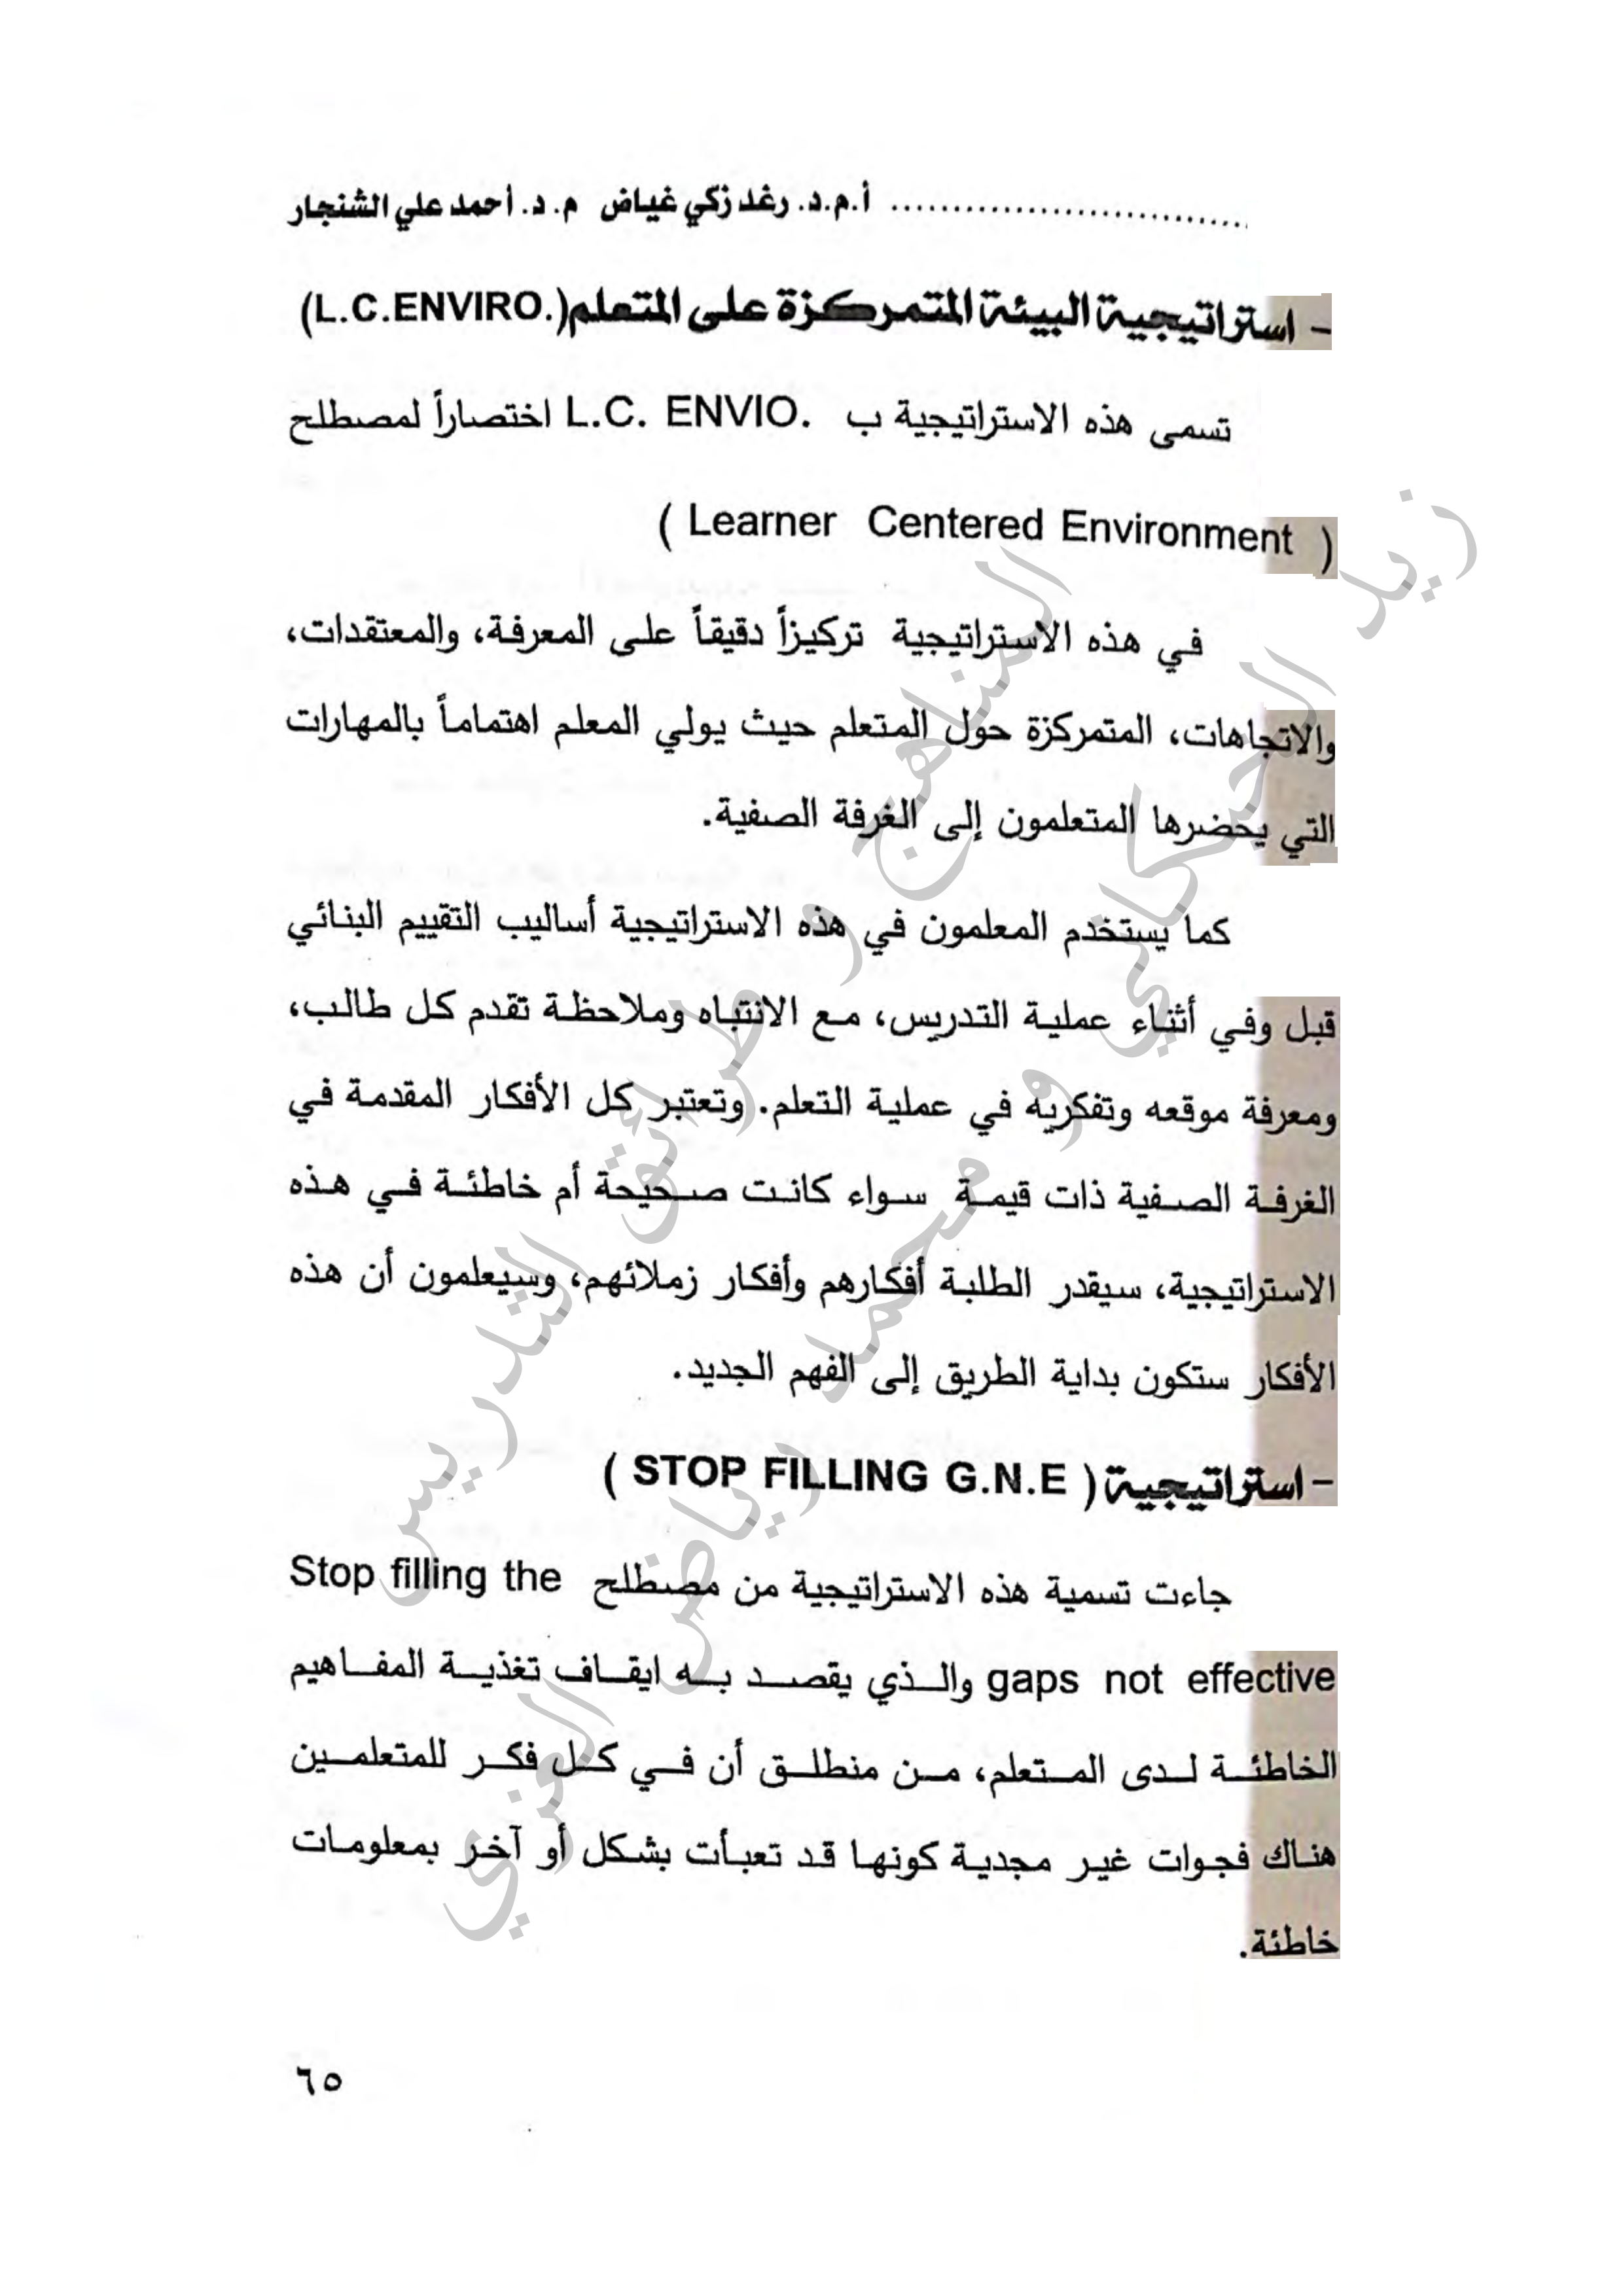 ............................. أ.م.د. رغد زكي غياض م. د. أحمد علي الشنجار
- استراتيجية البيئة المتمركزة على المتعلم(L.C.ENVIRO.)
تسمى هذه الاستراتيجية ب L.C. ENVIO. اختصاراً لمصطلح
( Learner Centered Environment )
في هذه الاستراتيجية تركيزاً دقيقاً على المعرفة، والمعتقدات،
والاتجاهات، المتمركزة حول المتعلم حيث يولي المعلم اهتماماً بالمهارات
التي يحضرها المتعلمون إلى الغرفة الصفية.
كما يستخدم المعلمون في هذه الاستراتيجية أساليب التقييم البنائي
قبل وفي أثناء عملية التدريس، مع الانتباه وملاحظة تقدم كل طالب،
ومعرفة موقعه وتفكريه في عملية التعلم. وتعتبر كل الأفكار المقدمة في
الغرفة الصفية ذات قيمة سواء كانت صحيحة أم خاطئة في هذه
الاستراتيجية، سيقدر الطلبة أفكارهم وأفكار زملائهم، وسيعلمون أن هذه
الأفكار ستكون بداية الطريق إلى الفهم الجديد.
- استراتيجية ( STOP FILLING G.N.E )
جاءت تسمية هذه الاستراتيجية من مصطلح Stop filling the
gaps not effective والذي يقصد به ايقاف تغذية المفاهيم
الخاطئة لدى المتعلم، من منطلق أن في كل فكر للمتعلمين
هناك فجوات غير مجدية كونها قد تعبأت بشكل أو آخر بمعلومات
خاطئة.
٦٥
المناهج و طرائق التدريس
زيد الحركاني و محمد رياض العزي